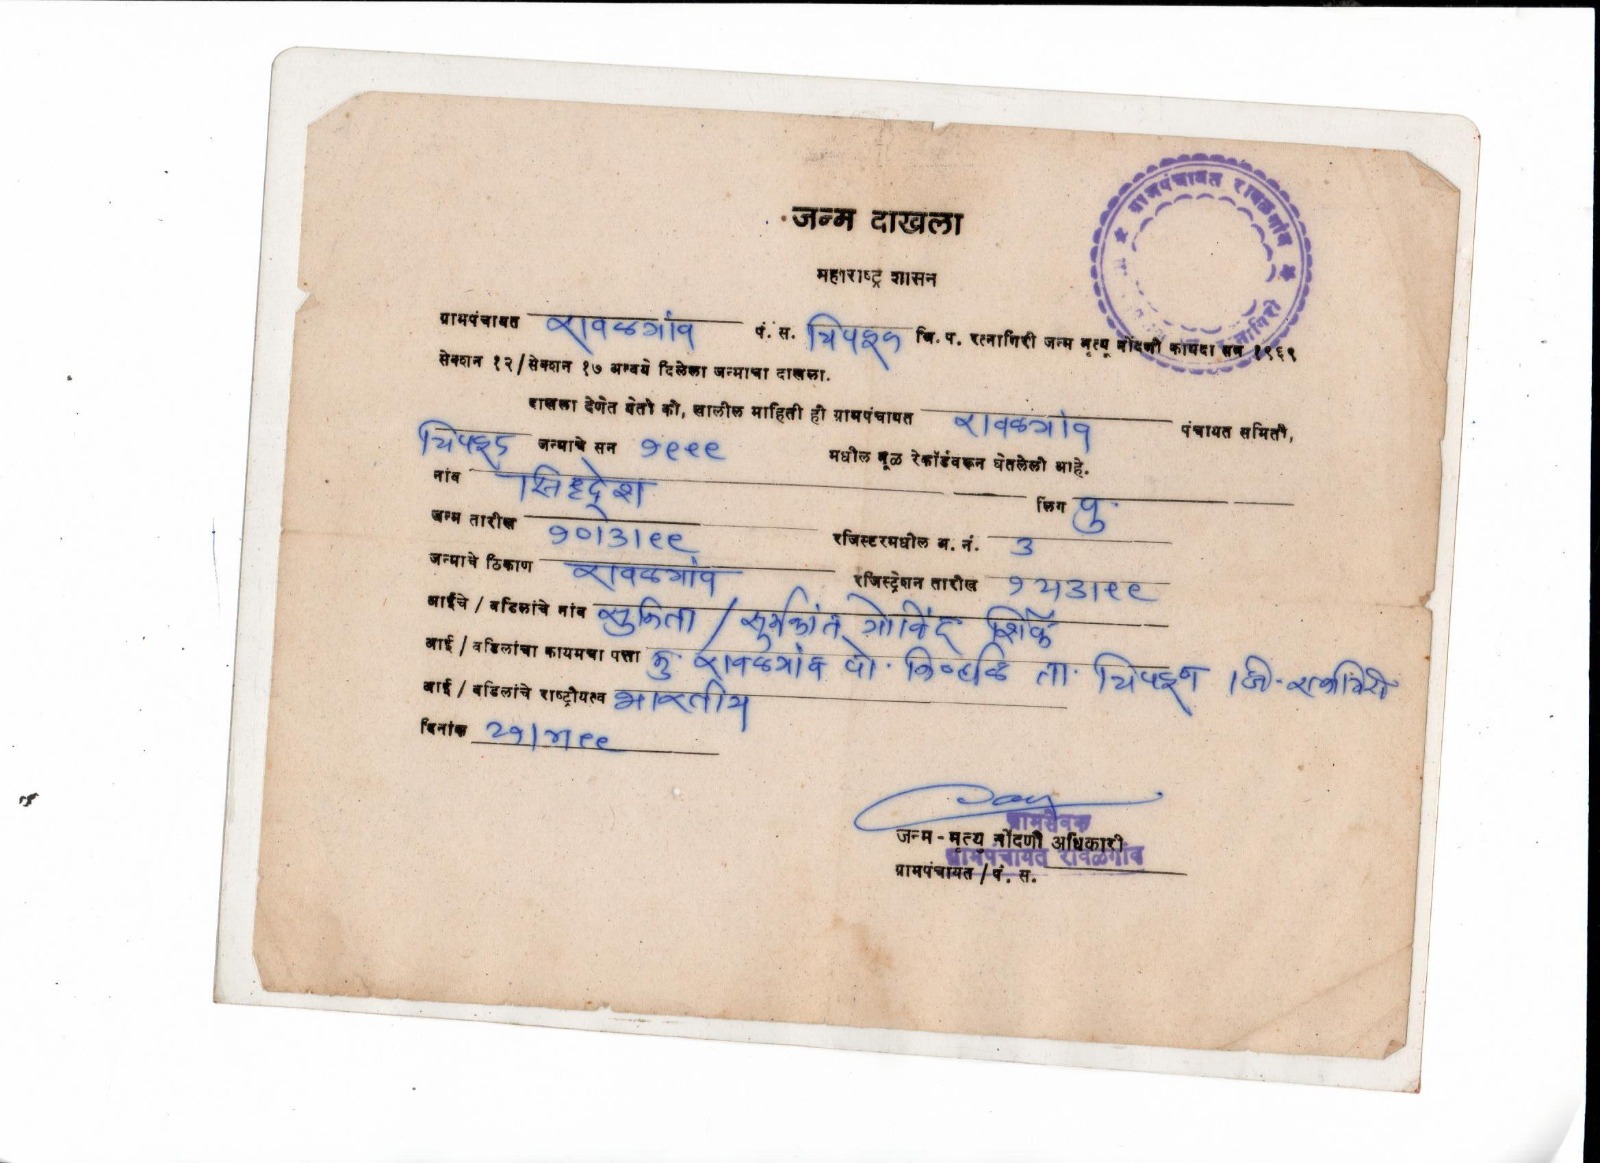 जन्म दाखला
महाराष्ट्र शासन
ग्रामपंचायत रावळगांव पं. स. चिपळूण जि. प. रत्नागिरी जन्म मृत्यू नोंदणी कायदा सन १९६९
सेक्शन १२/सेक्शन १७ अन्वये दिलेला जन्माचा दाखला.
दाखला देणेत येतो की, खालील माहिती ही ग्रामपंचायत रावळगांव पंचायत समिती,
चिपळूण जन्माचे सन १९९९ मधील मूळ रेकॉर्डवरून घेतलेली आहे.
नांव सिद्धेश लिंग पु.
जन्म तारीख १०।३।९९ रजिस्टरमधील अ. नं. ३
जन्माचे ठिकाण रावळगांव रजिस्ट्रेशन तारीख १५।३।९९
आईचे / वडिलांचे नांव / सुर्यकांत गोविंद शिर्के
आई / वडिलांचा कायमचा पत्ता मु. रावळगांव पो. ता. चिपळूण जि. रत्नागिरी
आई / वडिलांचे राष्ट्रीयत्व भारतीय
दिनांक
ग्रामसेवक
जन्म - मृत्यु नोंदणी अधिकारी
ग्रामपंचायत रावळगांव
ग्रामपंचायत / पं. स.
★ ग्रामपंचायत रावळगांव ★